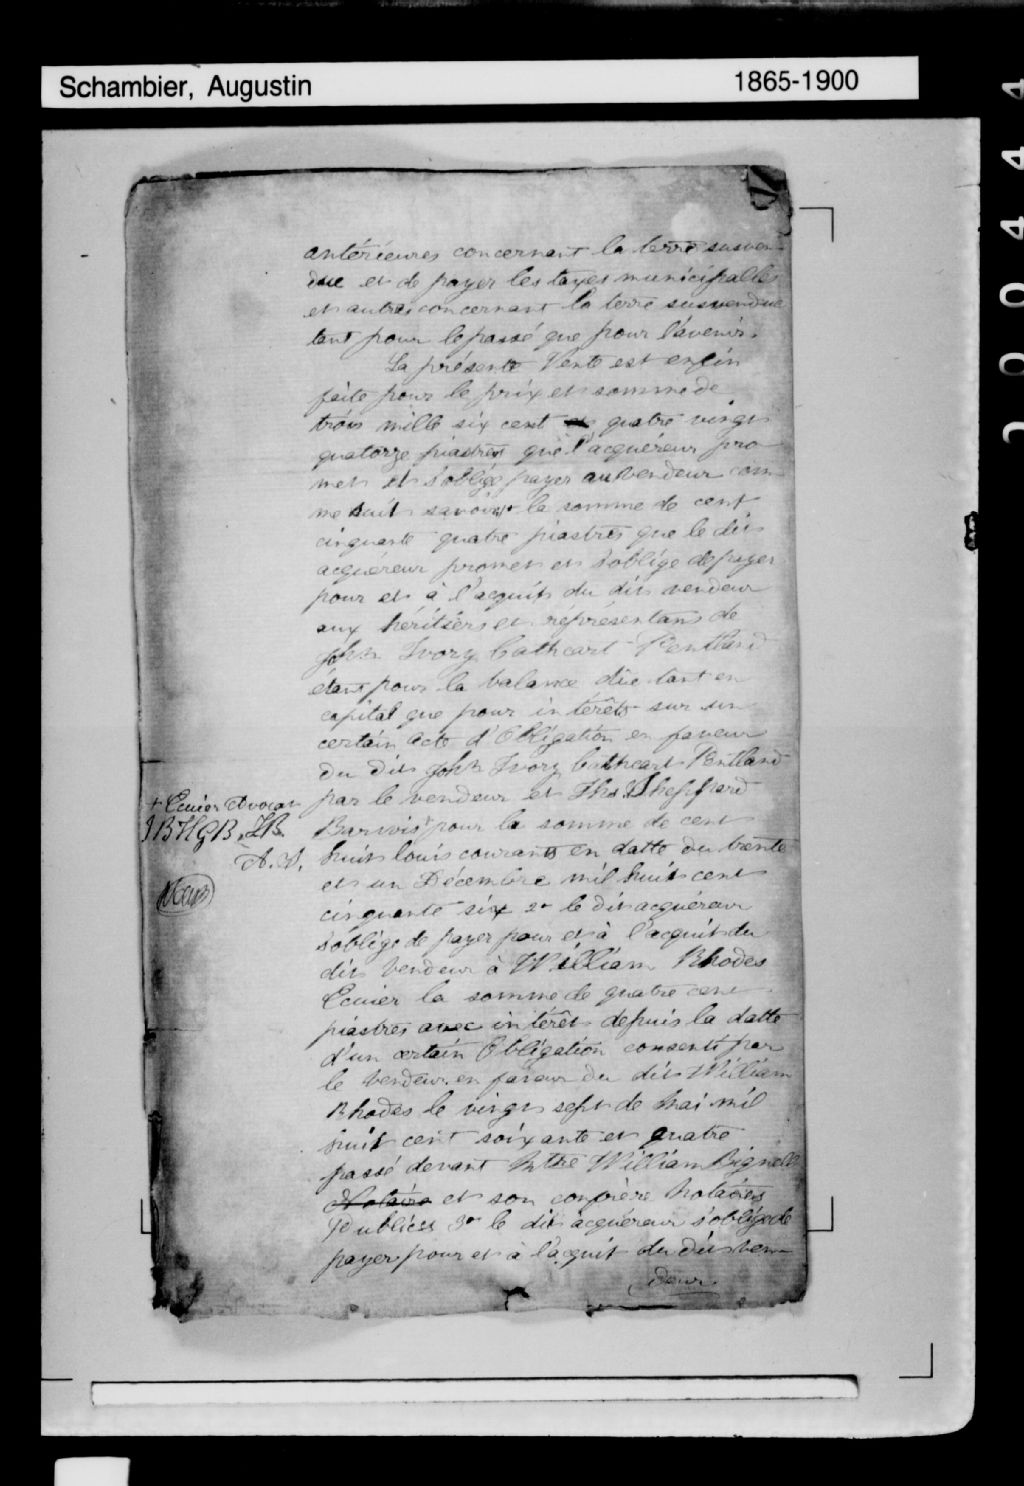 Schambier, Augustin
1865-1900
antérieures concernant la terre susven-
due et de payer les taxes municipalles
et autres concernant la terre susvendue
tant pour le passé que pour l'avenir.
La présente Vente est enfin
faite pour le prix et somme de
trois mille six cent quatre vingt
quatorze piastres que l'acquéreur pro-
met et s'oblige payer au vendeur com-
me suit savoir la somme de cent
cinquante quatre piastres que le dit
acquéreur promet et s'oblige de payer
pour et à l'acquit du dit vendeur
aux héritiers et représentans de
John Ivory Cathcart Pentland
étant pour la balance düe tant en
capital que pour intérêts sur un
certain Acte d'Obligation en faveur
du dit John Ivory Cathcart Pentland
par le vendeur et Ths Sheppard
+ Ecuier Avocat
JBHGB, LB.
A. S.
Barwis + pour la somme de cent
huit louis courants en datte du trente
et un Décembre mil huit cent
cinquante six 2o le dit acquéreur
s'oblige de payer pour et à l'acquit du
dit Vendeur à William Rhodes
Ecuier la somme de quatre cent
piastres avec intérêt depuis la datte
d'un certain Obligation consenti par
le Vendeur en faveur du dit William
Rhodes le vingt sept de Mai mil
huit cent soixante et quatre
passé devant Mtre William Bignell
Notaire et son confrère Notaires
Publics 3o le dit acquéreur s'oblige de
payer pour et à l'acquit du dit ven-
deur